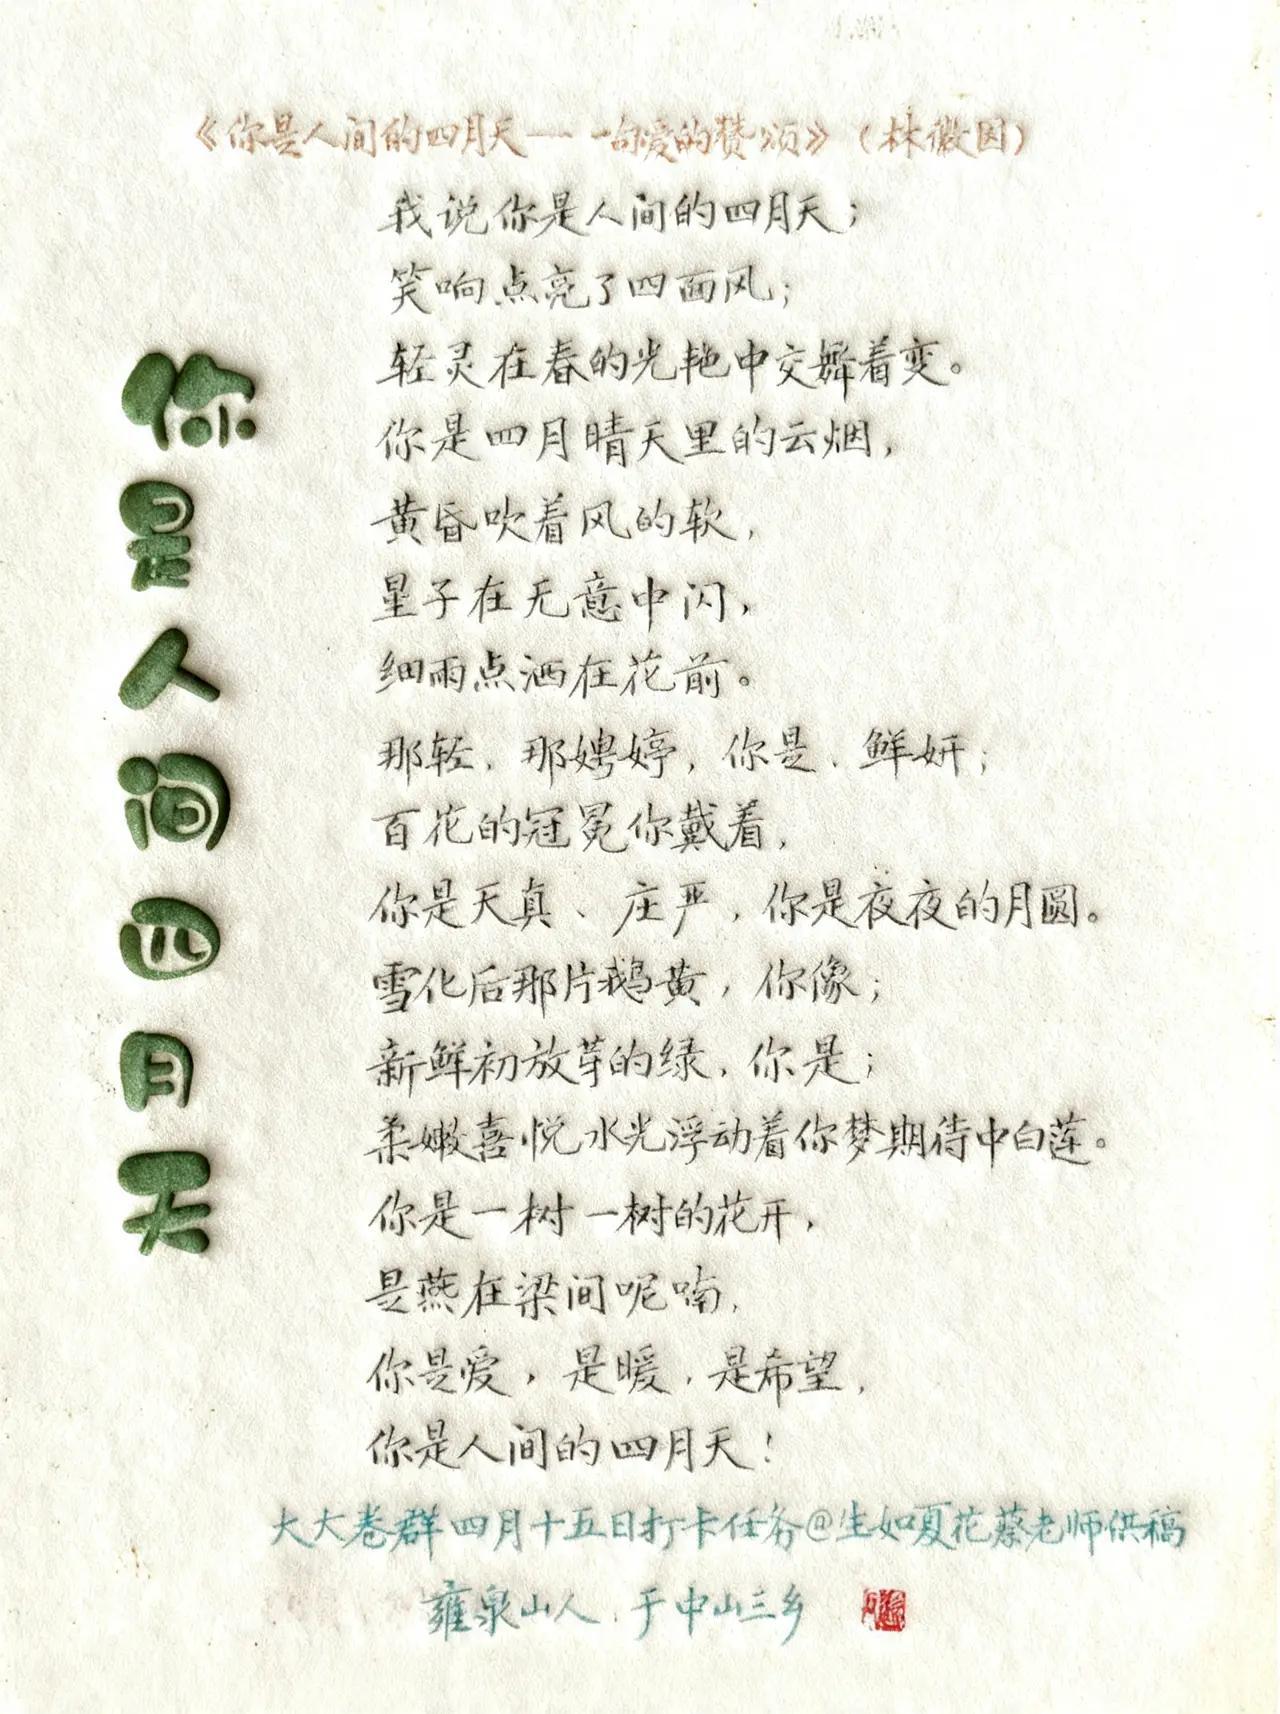 《你是人间的四月天——一句爱的赞颂》（林徽因）
我说你是人间的四月天；
笑响点亮了四面风；
轻灵在春的光艳中交舞着变。
你是四月晴天里的云烟，
黄昏吹着风的软，
星子在无意中闪，
细雨点洒在花前。
那轻，那娉婷，你是，鲜妍；
百花的冠冕你戴着，
你是天真、庄严，你是夜夜的月圆。
雪化后那片鹅黄，你像；
新鲜初放芽的绿，你是；
柔嫩喜悦水光浮动着你梦期待中白莲。
你是一树一树的花开，
是燕在梁间呢喃，
你是爱，是暖，是希望，
你是人间的四月天！
大大卷群四月十五日打卡任务@生如夏花蔡老师供稿
雍泉山人 于中山三乡
你是人间四月天